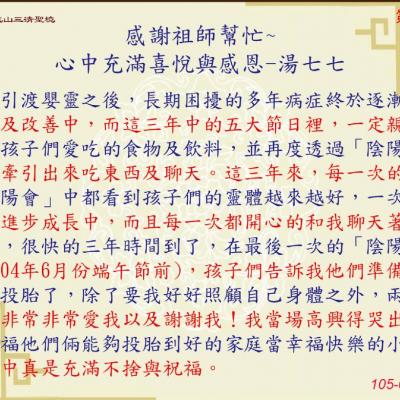 山三清聖境
感謝祖師幫忙~
心中充滿喜悅與感恩-湯七七
引渡嬰靈之後，長期困擾的多年病症終於逐漸
及改善中，而這三年中的五大節日裡，一定親
孩子們愛吃的食物及飲料，並再度透過「陰陽
牽引出來吃東西及聊天。這三年來，每一次的
陽會」中都看到孩子們的靈體越來越好，一次
進步成長中，而且每一次都開心的和我聊天著
，很快的三年時間到了，在最後一次的「陰陽
04年6月份端午節前)，孩子們告訴我他們準備
投胎了，除了要我好好照顧自己身體之外，兩
非常非常愛我以及謝謝我！我當場高興得哭出
福他們倆能夠投胎到好的家庭當幸福快樂的小
中真是充滿不捨與祝福。
105-